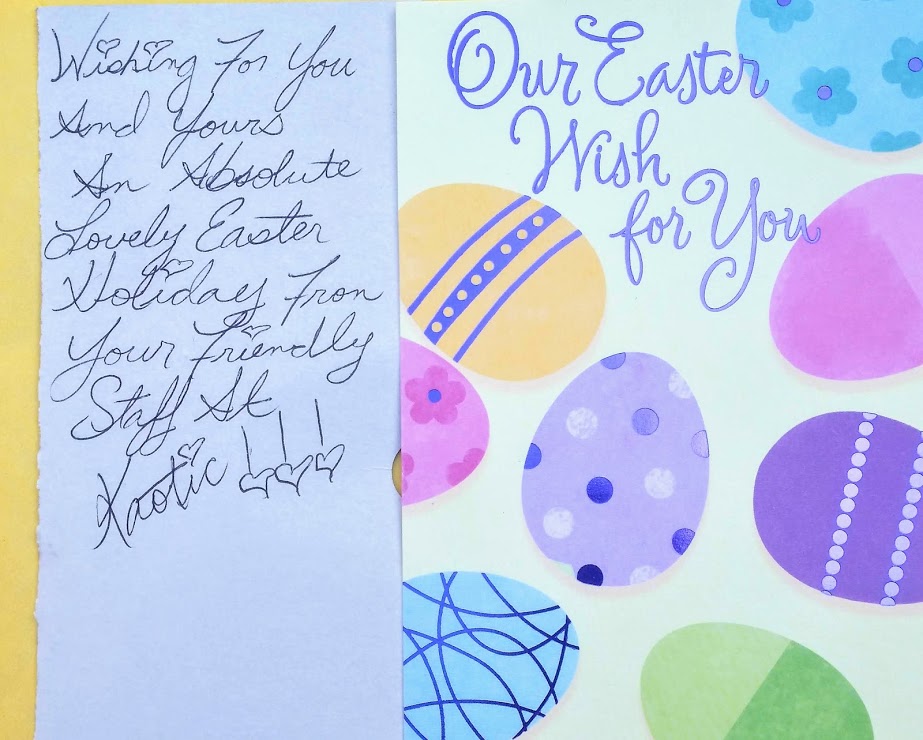 Wishing For You
And Yours
An Absolute
Lovely Easter
Holiday From
Your Friendly
Staff At
Kaotic !!!
Our Easter
Wish
for You